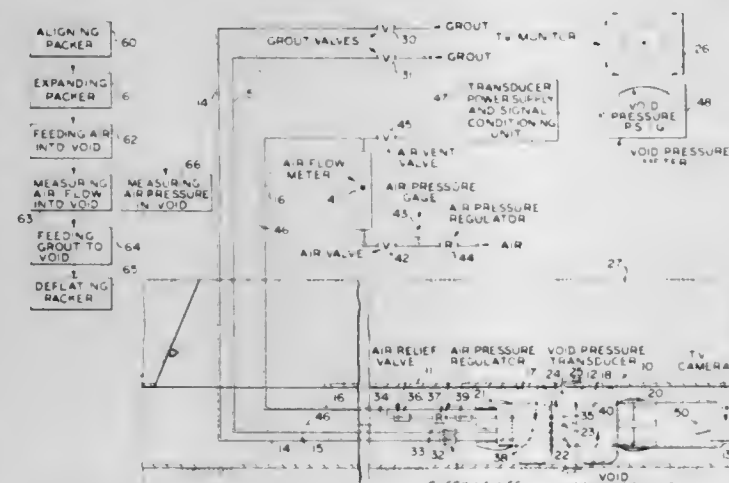 ALIGNING
PACKER
60
EXPANDING
PACKER
6
FEEDING AIR
INTO VOID
62
MEASURING
AIR FLOW
INTO VOID
63
MEASURING
AIR PRESSURE
IN VOID
66
FEEDING
GROUT TO
VOID
64
65
DEFLATING
PACKER
GROUT VALVES
V
30
GROUT
V
31
GROUT
14
TV MONITOR
26
47
TRANSDUCER
POWER SUPPLY
AND SIGNAL
CONDITIONING
UNIT
VOID
PRESSURE
PSIG
48
VOID PRESSURE
V
45
AIR VENT
VALVE
AIR FLOW
METER
4
16
46
AIR PRESSURE
GAGE
43
AIR PRESSURE
REGULATOR
AIR VALVE
V
42
R
44
AIR
27
AIR RELIEF
VALVE
AIR PRESSURE
REGULATOR
VOID PRESSURE
TRANSDUCER
TV
CAMERA
11
17
24
25
12
18
10
16
34
36
37
39
21
20
46
R
35
40
1
50
23
14
15
33
32
38
22
VOID